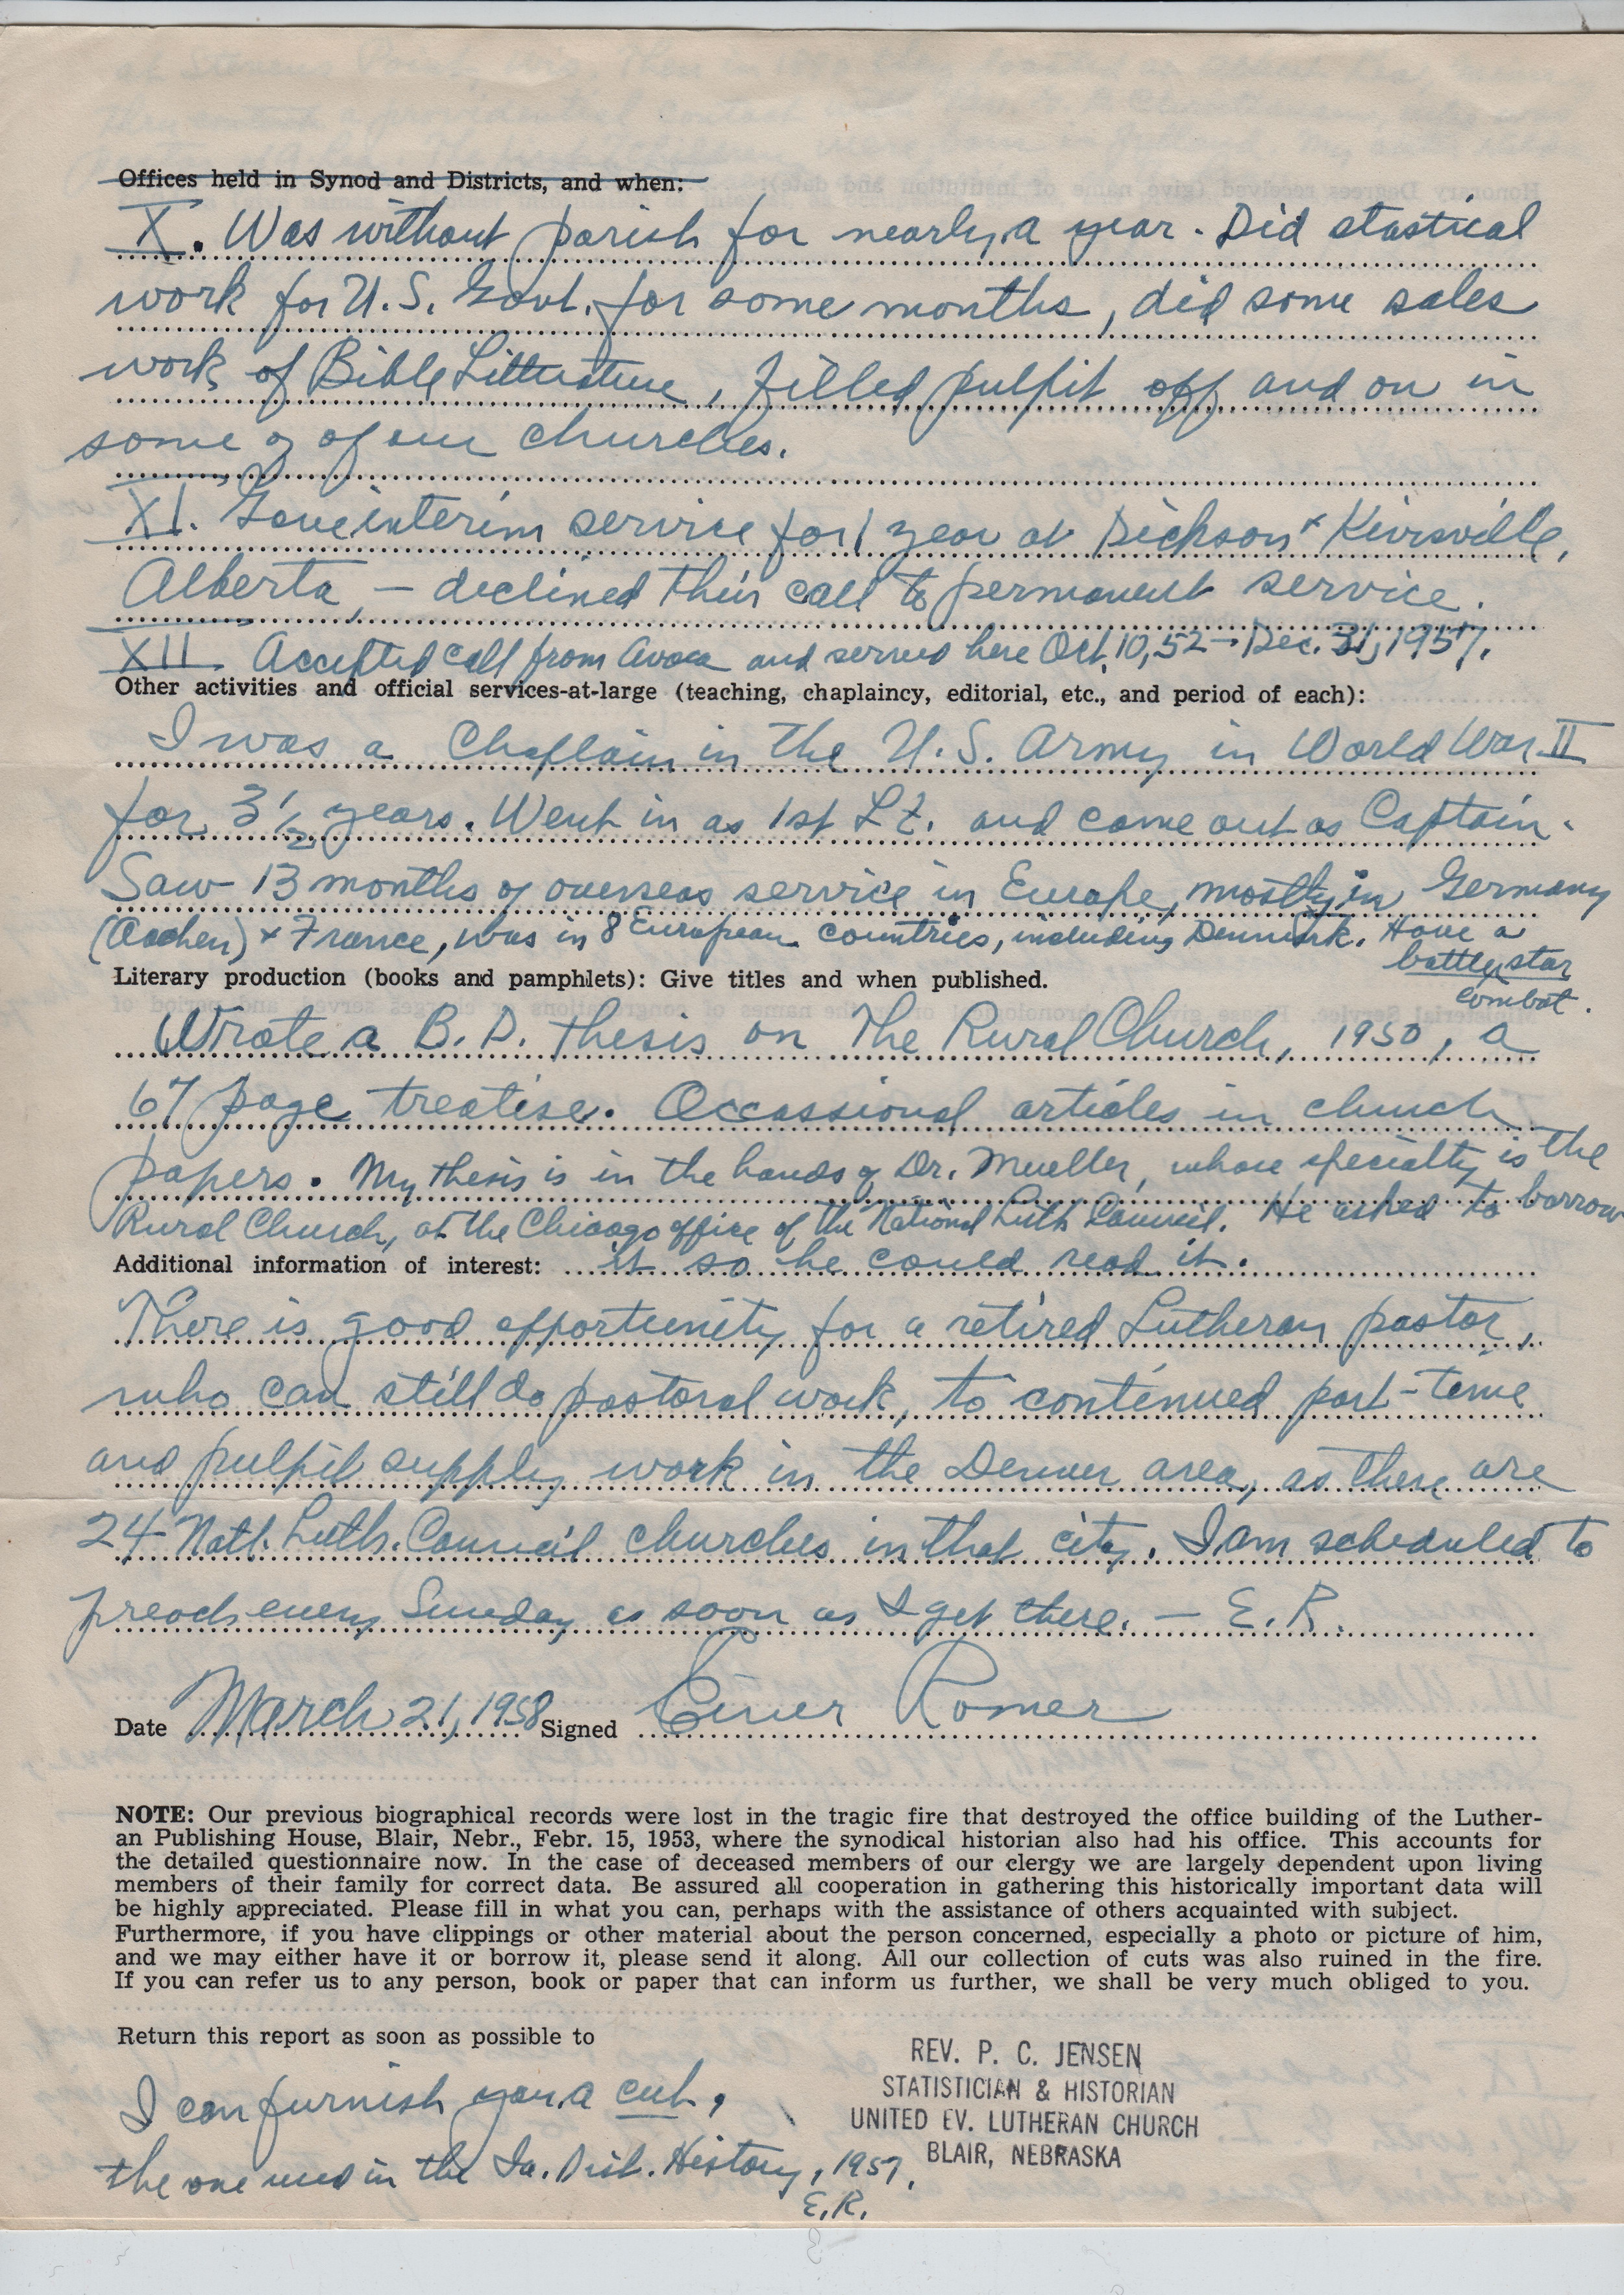 Offices held in Synod and Districts, and when:
X. Was without parish for nearly a year. Did stastical
work for U.S. Govt. for some months, did some sales
work of Bible Litterature, filled pulpit off and on in
some of our churches.
XI. Gave interim service for 1 year at Dickson & Kevisville,
Alberta, – declined their call to permanent service.
XII. Accepted call from Avoca and served here Oct. 10, 52 – Dec. 31, 1957.
Other activities and official services-at-large (teaching, chaplaincy, editorial, etc., and period of each):
I was a Chaplain in the U.S. Army in World War II
for 3½ years. Went in as 1st Lt. and came out as Captain.
Saw 13 months of overseas service in Europe, mostly in Germany
(Aachen) & France, was in 8 European countries, including Denmark. Have a
battle star
combat.
Literary production (books and pamphlets): Give titles and when published.
Wrote a B.D. thesis on The Rural Church, 1950, a
67 page treatise. Occassional articles in church
papers. My thesis is in the hands of Dr. Mueller, whose specialty is the
Rural Church, at the Chicago office of the National Luth Council. He asked to borrow
Additional information of interest: it so he could read it.
There is good opportunity for a retired Lutheran pastor,
who can still do pastoral work, to continued part-time
and pulpit supply work in the Denver area, as there are
24 Natl. Luth. Council churches in that city. I am scheduled to
preach every Sunday as soon as I get there. – E.R.
Date March 21, 1958 Signed Einer Romer
NOTE: Our previous biographical records were lost in the tragic fire that destroyed the office building of the Luther-
an Publishing House, Blair, Nebr., Febr. 15, 1953, where the synodical historian also had his office. This accounts for
the detailed questionnaire now. In the case of deceased members of our clergy we are largely dependent upon living
members of their family for correct data. Be assured all cooperation in gathering this historically important data will
be highly appreciated. Please fill in what you can, perhaps with the assistance of others acquainted with subject.
Furthermore, if you have clippings or other material about the person concerned, especially a photo or picture of him,
and we may either have it or borrow it, please send it along. All our collection of cuts was also ruined in the fire.
If you can refer us to any person, book or paper that can inform us further, we shall be very much obliged to you.
Return this report as soon as possible to
REV. P. C. JENSEN
STATISTICIAN & HISTORIAN
UNITED EV. LUTHERAN CHURCH
BLAIR, NEBRASKA
I can furnish you a cut,
the one used in the Ia. Dist. History, 1957.
E.R.